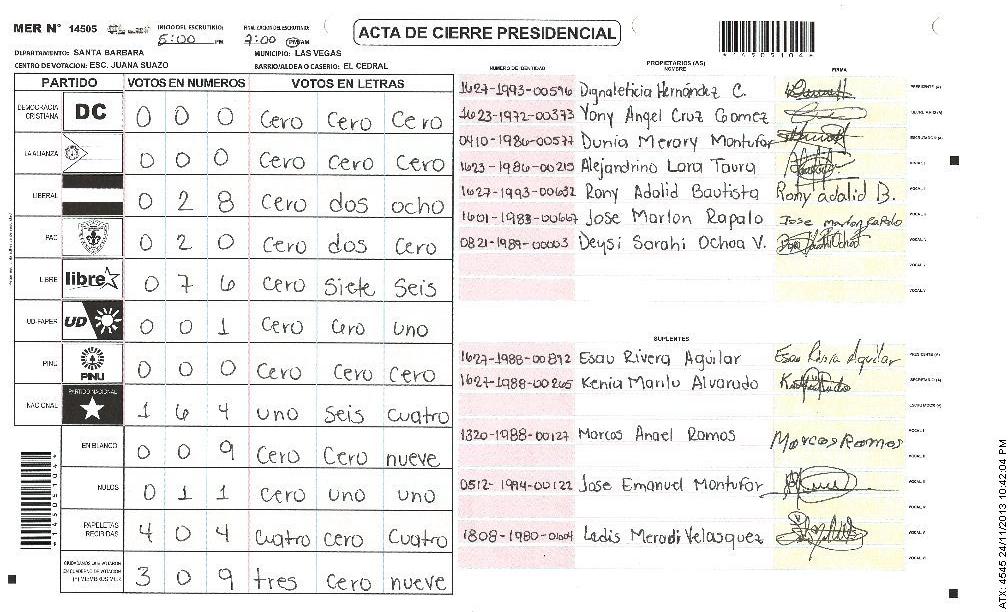 MER N° 14505 INICIO DEL ESCRUTINIO: 5:00 PM FINALIZACION DEL ESCRUTINIO 7:00 PM AM
ACTA DE CIERRE PRESIDENCIAL
DEPARTAMENTO: SANTA BARBARA MUNICIPIO: LAS VEGAS
CENTRO DE VOTACION: ESC. JUANA SUAZO BARRIO/ALDEA O CASERIO: EL CEDRAL
PARTIDO VOTOS EN NUMEROS VOTOS EN LETRAS
DEMOCRACIA CRISTIANA DC 0 0 0 Cero Cero Cero
LA ALIANZA 0 0 0 Cero cero cero
LIBERAL 0 2 8 Cero dos ocho
PAC 0 2 0 Cero dos Cero
LIBRE libre 0 7 6 Cero Siete Seis
UD-FAPER UD 0 0 1 Cero Cero uno
PINU PINU 0 0 0 Cero Cero cero
NACIONAL PARTIDO NACIONAL 1 6 4 uno Seis cuatro
EN BLANCO 0 0 9 Cero Cero nueve
NULOS 0 1 1 cero uno uno
PAPELETAS RECIBIDAS 4 0 4 Cuatro cero Cuatro
CIUDADANOS QUE VOTARON EN CUADERNO DE VOTACION (+) MIEMBROS MER 3 0 9 tres Cero nueve
NUMERO DE IDENTIDAD PROPIETARIOS (AS) NOMBRE FIRMA
1627-1993-00596 Dignaleticia Hernández C. PRESIDENTE (A)
1623-1972-00373 Yony Angel Cruz Gomez SECRETARIO (A)
0410-1986-00577 Dunia Merary Montufar ESCRUTADOR (A)
1623-1986-00215 Alejandrino Lara Taura VOCAL I
1627-1993-00632 Rony Adalid Bautista Rony adalid B. VOCAL II
1601-1983-00667 Jose Marlon Rapalo Jose marlon Rapalo VOCAL III
0821-1989-00003 Deysi Sarahi Ochoa V. VOCAL IV
VOCAL V
VOCAL VI
SUPLENTES
1627-1988-00892 Esau Rivera Aguilar Esau Rivera Aguilar PRESIDENTE (A)
1627-1988-00265 Kenia Marilu Alvarado SECRETARIO (A)
ESCRUTADOR (A)
1320-1988-00127 Marcos Angel Ramos Marcos Ramos VOCAL I
VOCAL II
0512-1994-00122 Jose Emanuel Montufar VOCAL III
VOCAL IV
1808-1980-01004 Ledis Meradi Velasquez VOCAL V
VOCAL VI
*14505104*
ATX: 4545 24/11/2013 10:42:04 PM